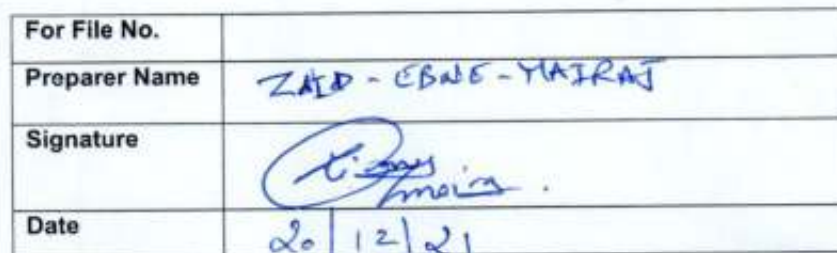 For File No.
Preparer Name ZAID - EBNE - MAIRAJ
Signature
Date 20/12/21